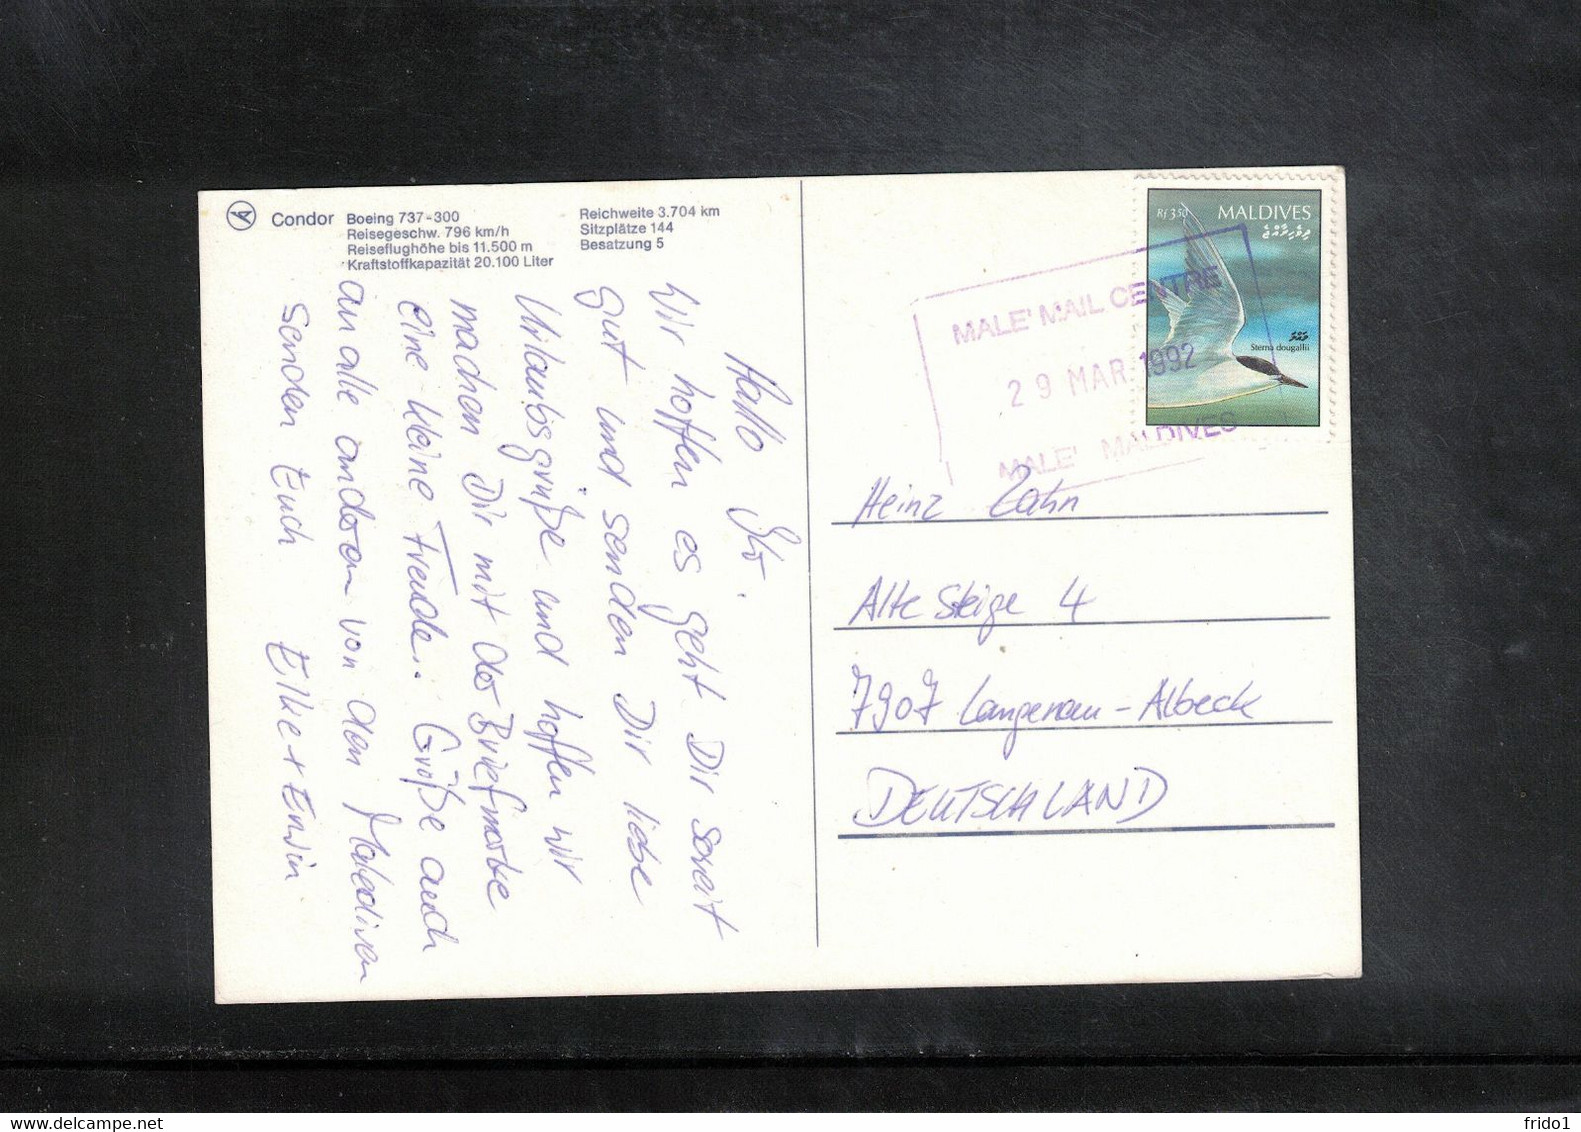 Condor
Boeing 737-300
Reisegeschw. 796 km/h
Reiseflughöhe bis 11.500 m
Kraftstoffkapazität 20.100 Liter
Reichweite 3.704 km
Sitzplätze 144
Besatzung 5
Hallo
Wir hoffen es geht Dir soweit
gut und senden Dir liebe
Urlaubsgrüße und hoffen wir
machen Dir mit der Briefmarke
eine kleine Freude. Grüße auch
an alle anderen von den Malediven
senden Euch Elke + Erwin
Rf 3.50 MALDIVES
ދިވެހިރާއްޖެ
Sterna dougallii
MALE' MAIL CENTRE
29 MAR 1992
MALE' MALDIVES
Heinz Zahn
Alte Steige 4
7907 Langenau-Albeck
DEUTSCHLAND
frido1